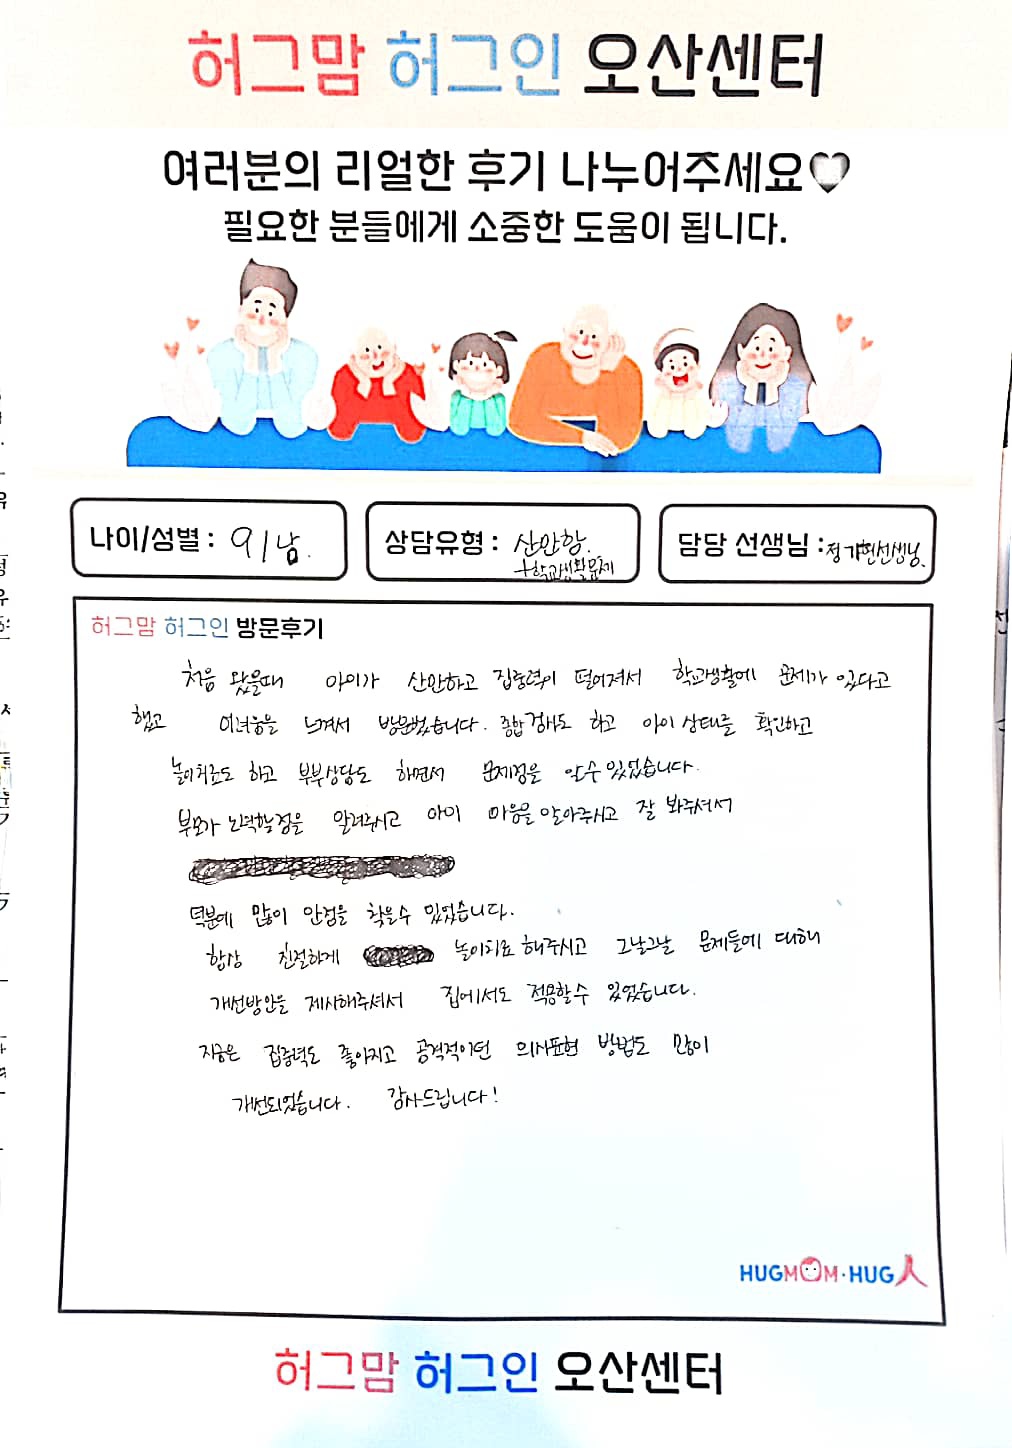 허그맘 허그인 오산센터
여러분의 리얼한 후기 나누어주세요♡
필요한 분들에게 소중한 도움이 됩니다.
나이/성별 : 9/남.
상담유형 : 산만함.
+학교생활문제
담당 선생님 : 정가현선생님.
허그맘 허그인 방문후기
처음 왔을때 아이가 산만하고 집중력이 떨어져서 학교생활에 문제가 있다고
했고 어려움을 느껴서 방문했습니다. 종합검사도 하고 아이 상태를 확인하고
놀이치료도 하고 부부상담도 하면서 문제점을 알수 있었습니다.
부모가 노력할점을 알려주시고 아이 마음을 알아주시고 잘 봐주셔서
덕분에 많이 안정을 찾을수 있었습니다.
항상 친절하게 놀이치료 해주시고 그날그날 문제들에 대해
개선방안을 제시해주셔서 집에서도 적용할수 있었습니다.
지금은 집중력도 좋아지고 공격적이던 의사표현 방법도 많이
개선되었습니다. 감사드립니다!
HUGMOM·HUG人
허그맘 허그인 오산센터